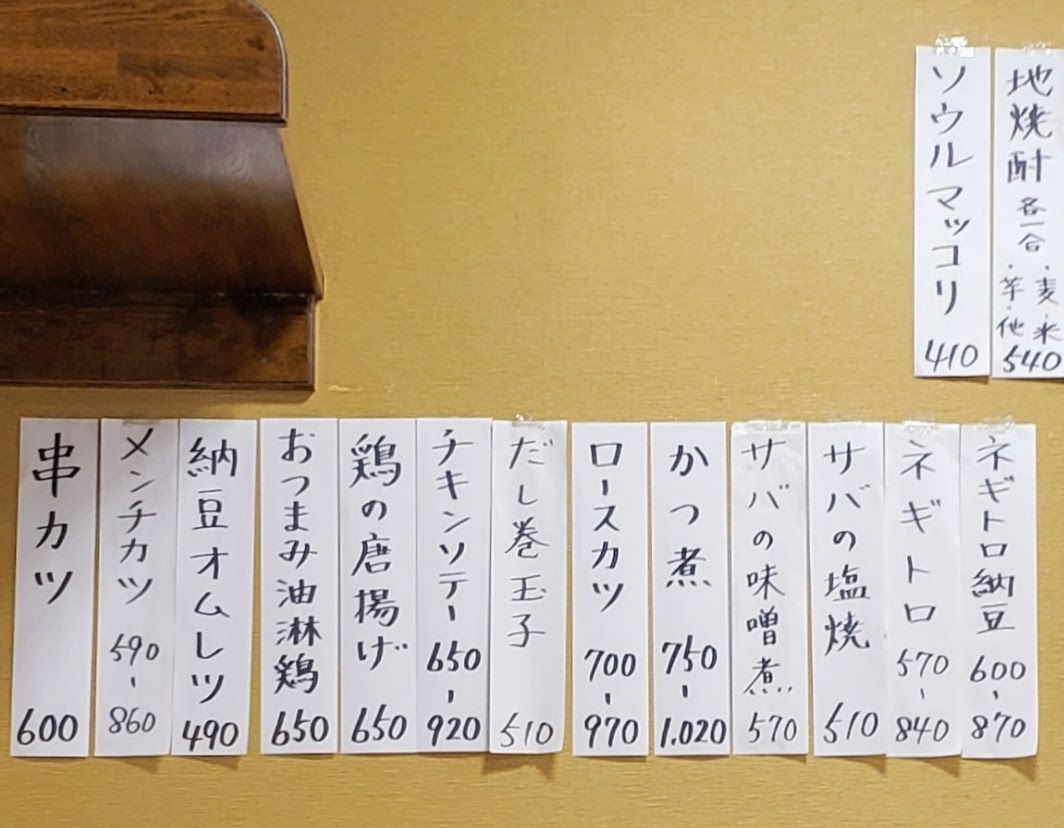 地焼酎 各一合
・麦・米
・芋・他
540
ソウルマッコリ
410
ネギトロ納豆
600-
870
ネギトロ
570-
840
サバの塩焼
510
サバの味噌煮
570
かつ煮
750-
1.020
ロースカツ
700-
970
だし巻玉子
510
チキンソテー
650-
920
鶏の唐揚げ
650
おつまみ油淋鶏
650
納豆オムレツ
490
メンチカツ
590-
860
串カツ
600